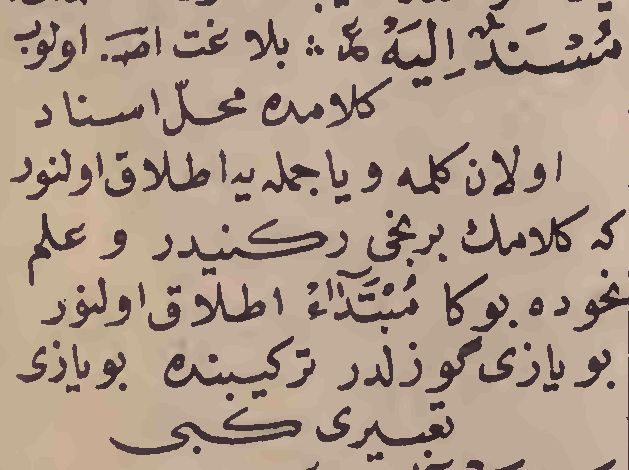 مُسْنَدٌ اِلَيهُ ع بلاغت اصط اولوب
كلامده محلّ اسناد
اولان كلمه ويا جمله يه اطلاق اولنور
كه كلامك برنجى ركنيدر و علم
نحوده بوكا مُبْتَدَاءْ اطلاق اولنور
بو يازى گوزلدر تركيبنده بو يازى
تعبيرى كبى